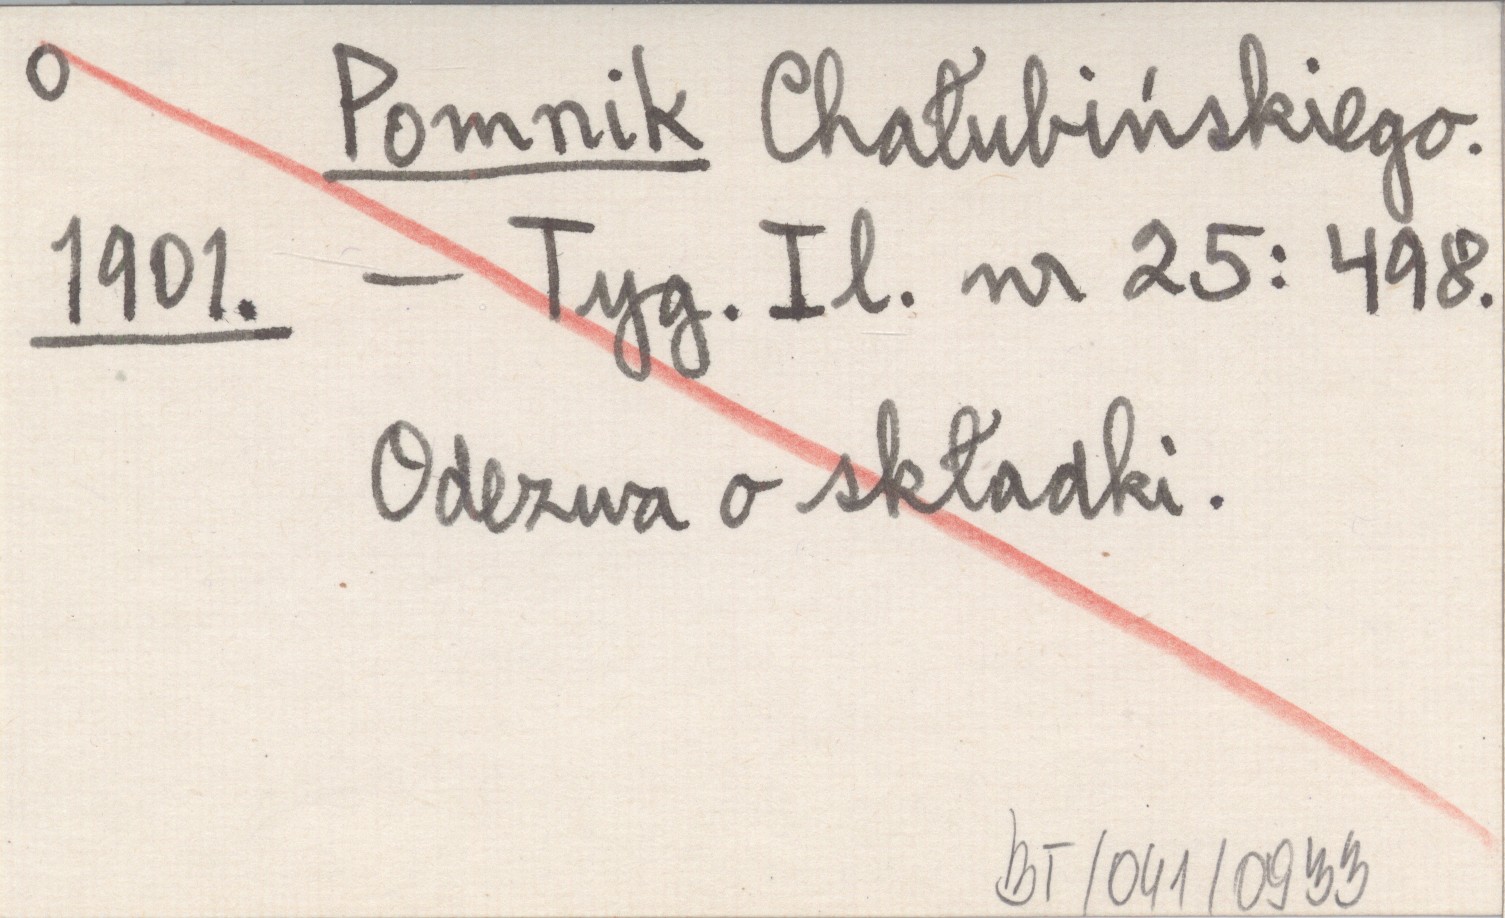 o Pomnik Chałubińskiego.
1901. — Tyg. Il. nr 25: 498.
Odezwa o składki.
BT/041/0933